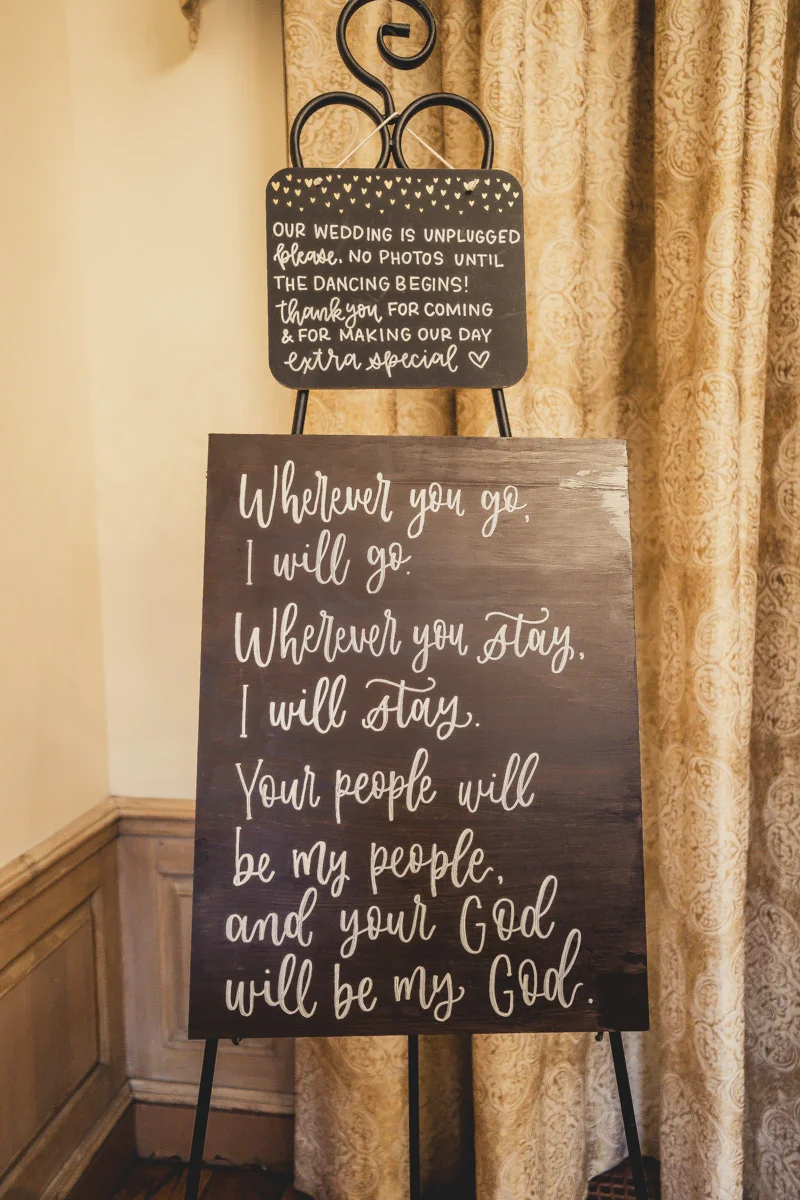 OUR WEDDING IS UNPLUGGED
please. NO PHOTOS UNTIL
THE DANCING BEGINS!
thank you FOR COMING
& FOR MAKING OUR DAY
extra special ♡
Wherever you go,
I will go.
Wherever you stay,
I will stay.
Your people will
be my people,
and your God
will be my God.